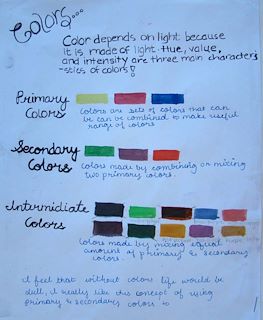 Colors...
Color depends on light because
it is made of light. Hue, value,
and intensity are three main character-
-stics of colors!
Primary
Colors
Colors are sets of colors that can
be can be combined to make useful
range of colors
Secondary
Colors
colors made by combining or mixing
two primary colors.
Intermidiate
Colors
colors made by mixing equal
amount of primary & secondary
colors.
I feel that without colors life would be
dull, I really like this concept of using
primary & secondary colors to